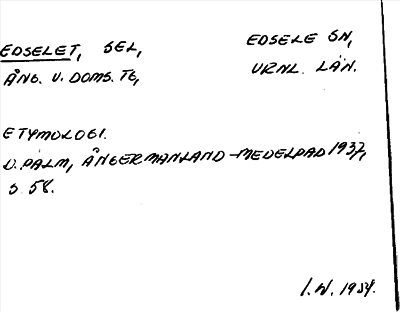 EDSELET, SEL, EDSELE SN,
ÅNG. V. DOMS. TG, VRNL. LÄN.
ETYMOLOGI.
D. PALM, ÅNGERMANLAND-MEDELPAD 1937,
S 58.
I.W. 1954.